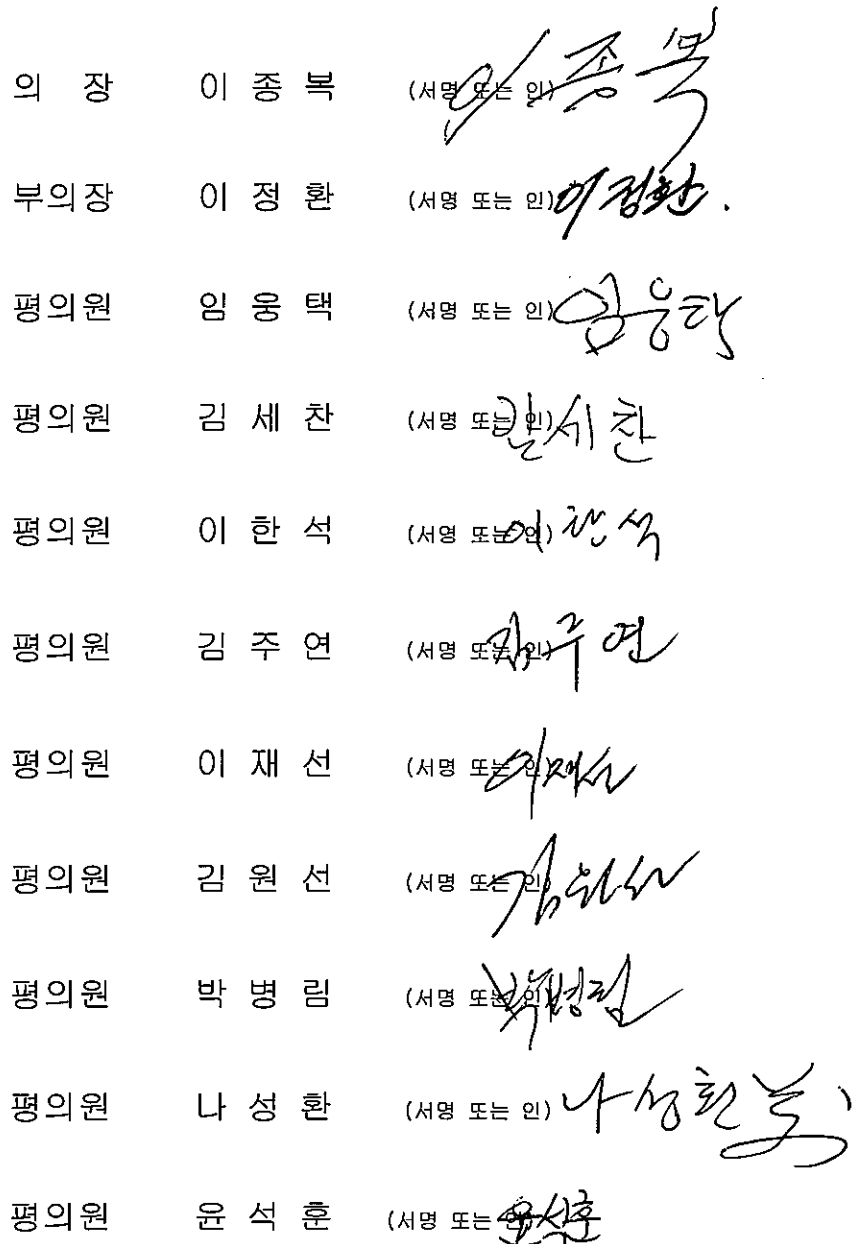 의 장 이 종 복 (서명 또는 인) 이종복
부의장 이 정 환 (서명 또는 인) 이정환.
평의원 임 웅 택 (서명 또는 인) 임웅택
평의원 김 세 찬 (서명 또는 인) 김세찬
평의원 이 한 석 (서명 또는 인) 이한석
평의원 김 주 연 (서명 또는 인) 김주연
평의원 이 재 선 (서명 또는 인) 이재선
평의원 김 원 선 (서명 또는 인) 김원선
평의원 박 병 림 (서명 또는 인) 박병림
평의원 나 성 환 (서명 또는 인) 나성환
평의원 윤 석 훈 (서명 또는 인) 윤석훈